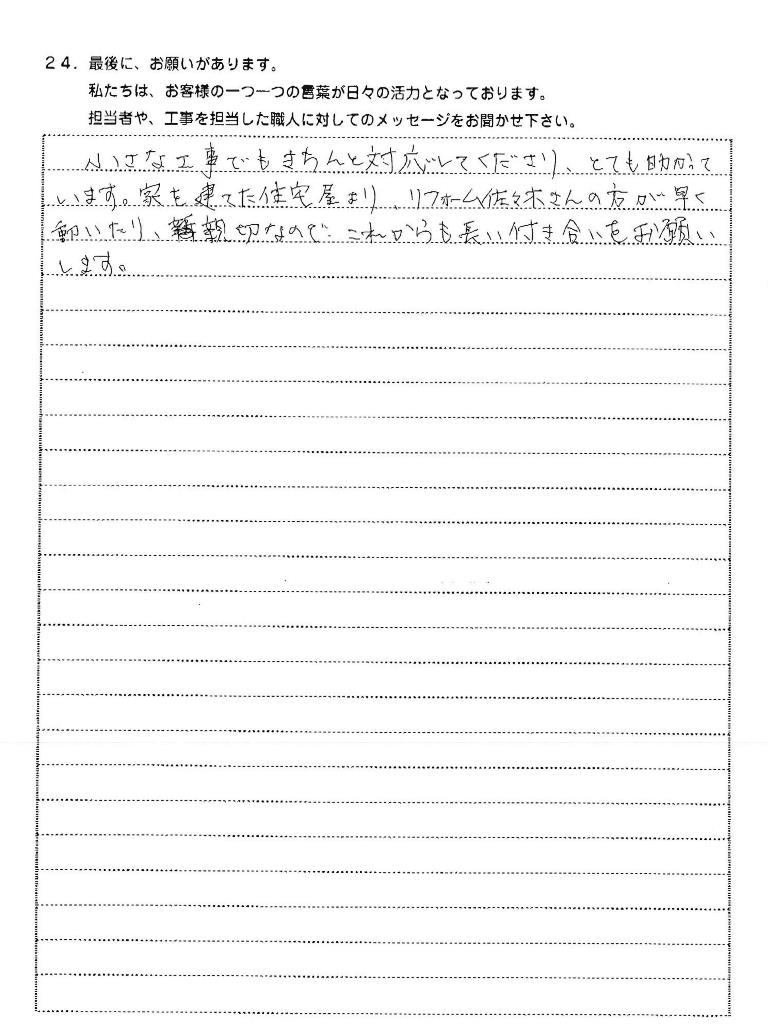 24．最後に、お願いがあります。
私たちは、お客様の一つ一つの言葉が日々の活力となっております。
担当者や、工事を担当した職人に対してのメッセージをお聞かせ下さい。
小さな工事でもきちんと対応してくださり、とても助かって
います。家を建てた住宅屋より、リフォーム佐々木さんの方が早く
動いたり、親切なので、これからも長い付き合いをお願い
します。